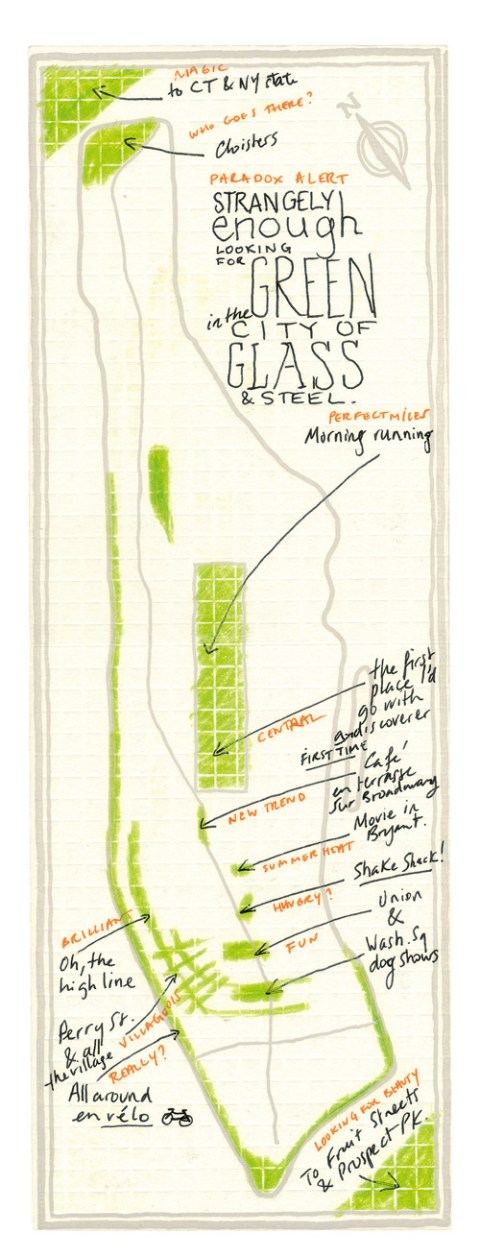 MAGIC
to CT & NY state
WHO GOES THERE?
Cloisters
N
PARADOX ALERT
STRANGELY
enough
LOOKING
FOR
GREEN
in the
CITY OF
GLASS
& STEEL.
PERFECT MILES
Morning running
the first
place I'd
go with
a discoverer
CENTRAL
FIRST TIME
Café
en terrasse
sur Broadway
NEW TREND
Movie in
Bryant.
SUMMER HEAT
Shake Shack!
HUNGRY?
Union
&
FUN
Wash. Sq
dog shows
BRILLIANT
Oh, the
high line
Perry St.
& all
the village
VILLAGEOIS
REALLY?
All around
en vélo
LOOKING FOR BEAUTY
To Fruit Streets
& Prospect PK.